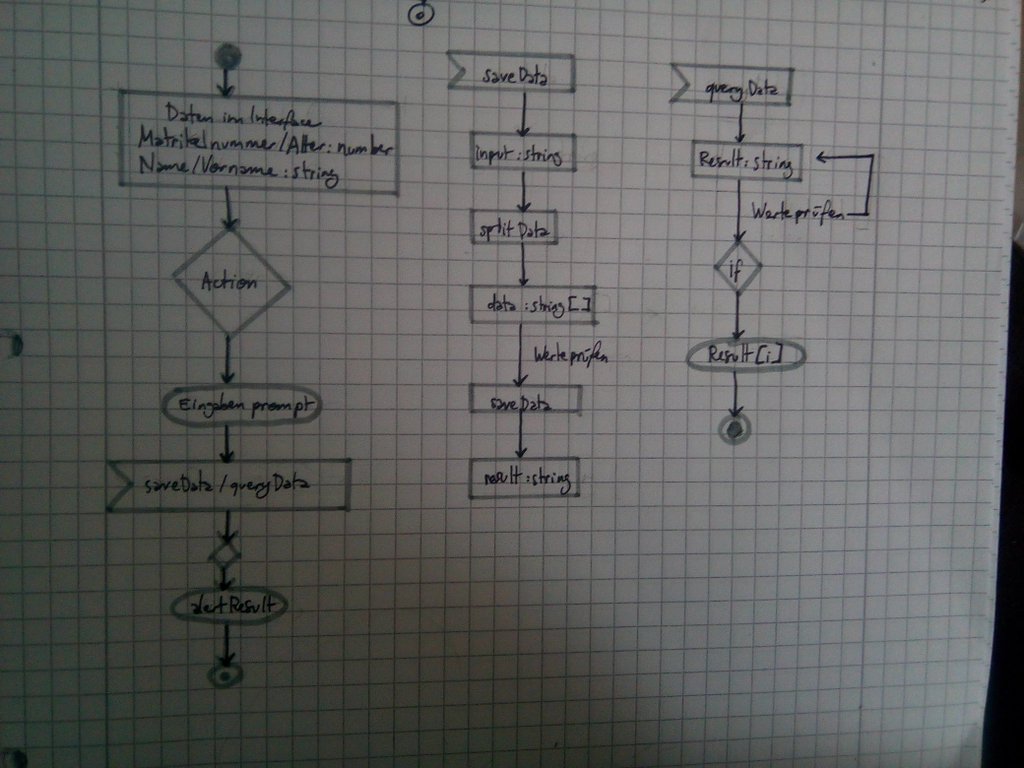 Daten im Interface
Matrikelnummer/Alter: number
Name/Vorname: string
Action
Eingaben prompt
saveData / queryData
alertResult
saveData
input: string
splitData
data: string[]
Werte prüfen
saveData
result: string
queryData
Result: string
Werte prüfen
if
Result [i]